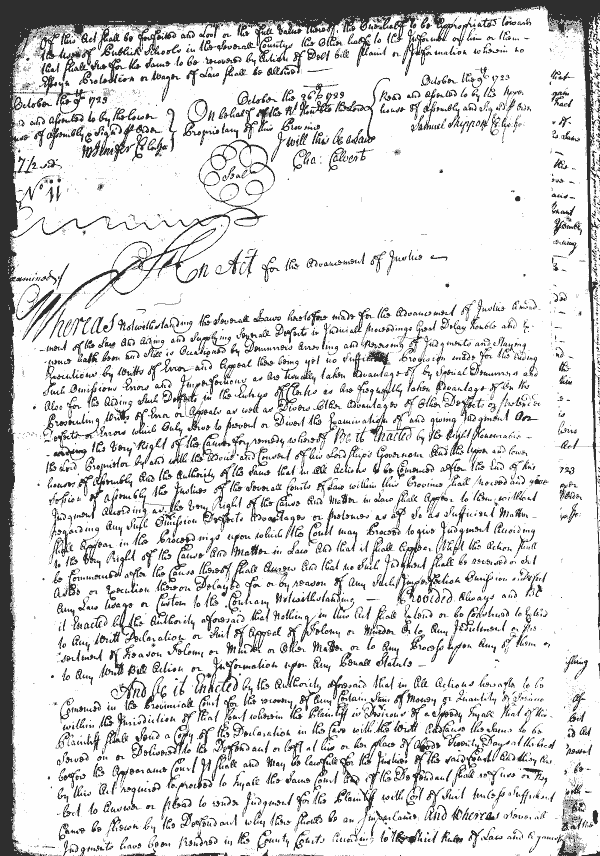 Of this Act shall be forfeited and Lost or the full Value thereof, the One half to be Appropriated towards
the use of Publick Schools in the Severall Countys the Other half to the Informer or him or them
that shall sue for the same to be recovered by Action of Debt bill Plaint or Information wherein no
Essoyn Protection or Wager of Law shall be Allowed
October the 9th 1723
Read and assented to by the Lower
house of Assembly & Signed P Order
M Jenifer Cl Lo Ho
October the 26th 1723
On behalf of the Rt Honble the Lord
Proprietary of this Province
I will this be a Law
Cha: Calvert
October the 9th 1723
Read and assented to by the Upper
house of Assembly and Signed P Order
Samuel Skippon Cl Up Ho
Seal
No 11
Examined
An Act for the Advancement of Justice
Whereas Notwithstanding the Severall Laws heretofore made for the Advancement of Justice Amend-
ment of the Law And Aiding and Supplying Severall Defects in Judiciall proceedings Great Delay trouble and Ex-
pence hath been and Still is Occasioned by Demurrers Arresting and reversing of Judgments and Staying
Executions by Writts of Error and Appeal there being yet no Sufficient Provision made for the Aiding
Such Omissions Errors and Imperfections as are Usually taken Advantage of by Special Demurrers and
Also for the Aiding Such Defects in the Entrys of Clerks as are frequently taken Advantage of on the
Prosecuting Writts of Error or Appeals as well as Divers Other Advantages of Other Defects or pretended
Defects or Errors which Only Serve to prevent or Divert the Examination of and giving Judgment
the Very Right of the Cause for remedy whereof Be it Enacted by the Right Honourable
the Lord Proprietor by and with the Advice and Consent of his Lordships Governour And the Upper and Lower
houses of Assembly And the Authority of the Same that in All Actions to be Comenced after the End of this
Session of Assembly the Justices of the Severall Courts of Law within this Province Shall proceed and give
Judgment According as the Very Right of the Cause And Matter in Law Shall Appear to them without
regarding Any Such Omission Defects Advantages or pretences as afd So as Sufficient Matter
Shall Appear in the Proceedings upon which the Court may Proceed to give Judgment According
to the Very Right of the Cause And Matter in Law And that it Shall Appear that the Action Shall
be Commenced after the Cause thereof Shall Accrew And that no Such Judgment Shall be reversed or Set
Aside or Execution thereon Delayed for or by reason of Any Such Imperfection Omission or Defect
Any Law usage or Custom to the Contrary Notwithstanding Provided Always and be
it Enacted by the Authority aforesaid that Nothing in this Act Shall Extend or be Construed to Extend
to Any Writt Declaration or Suit of Appeal of Felony or Murder or to Any Indictment or Pre
sentment of Treason Felony or Murder or Other Matter or to Any Process upon Any of them or
to Any Writt Bill Action or Information upon Any Penall Statute
And be it Enacted by the Authority aforesaid that in All Actions hereafter to be
Comenced in the Provinciall Court for the recovery of Any Certain Sum of Money or Quantity of Tobacco
within the Jurisdiction of that Court wherein the Plaintiff is Desirous of a Speedy Tryall that if the
Plaintiff Shall Send a Copy of the Declaration in the Case with the Writt And Cause the Same to be
Served on or Delivered to the Defendant or left at his or her place of Abode Twenty Days at the least
before the Appearance Court It Shall and may be Lawfull for the Justices of the said Court And they Are
by this Act required to proceed to Tryall the Same Court And if the Defendant Shall refuse or Neg
lect to Answer or plead to render Judgment for the Plaintiff with Cost of Suit unless Sufficient
Cause be Shewn by the Defendant why there Should be an Imparlance And whereas Severall
Judgments have been rendred in the County Courts According to the Strict Rules of Law and